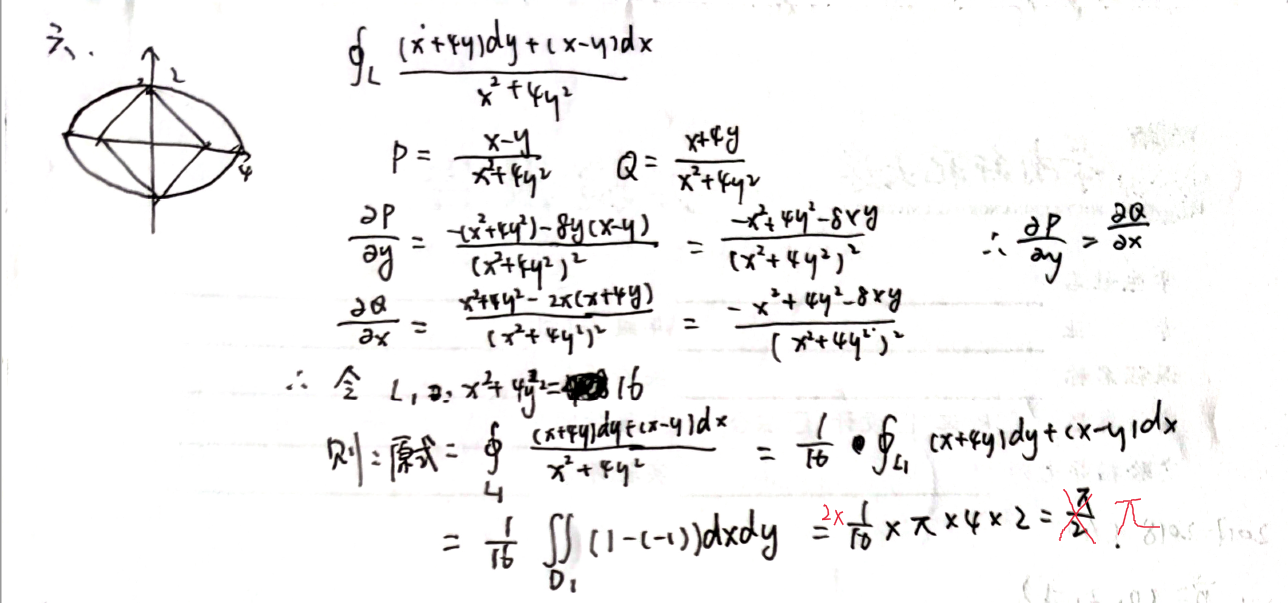 三、
2 L
4
∮_L ((x+4y)dy+(x-y)dx)/(x²+4y²)
P = (x-y)/(x²+4y²) Q = (x+4y)/(x²+4y²)
∂P/∂y = (-(x²+4y²)-8y(x-y))/(x²+4y²)² = (-x²+4y²-8xy)/(x²+4y²)² ∴ ∂P/∂y = ∂Q/∂x
∂Q/∂x = (x²+4y²-2x(x+4y))/(x²+4y²)² = (-x²+4y²-8xy)/(x²+4y²)²
∴ 令 L₁: x²+4y²=16
则:原式= ∮_L₁ ((x+4y)dy+(x-y)dx)/(x²+4y²) = 1/16 ∮_L₁ (x+4y)dy+(x-y)dx
= 1/16 ∬_D₁ (1-(-1))dxdy = 2× 1/16 × π × 4 × 2 = π/2 π.